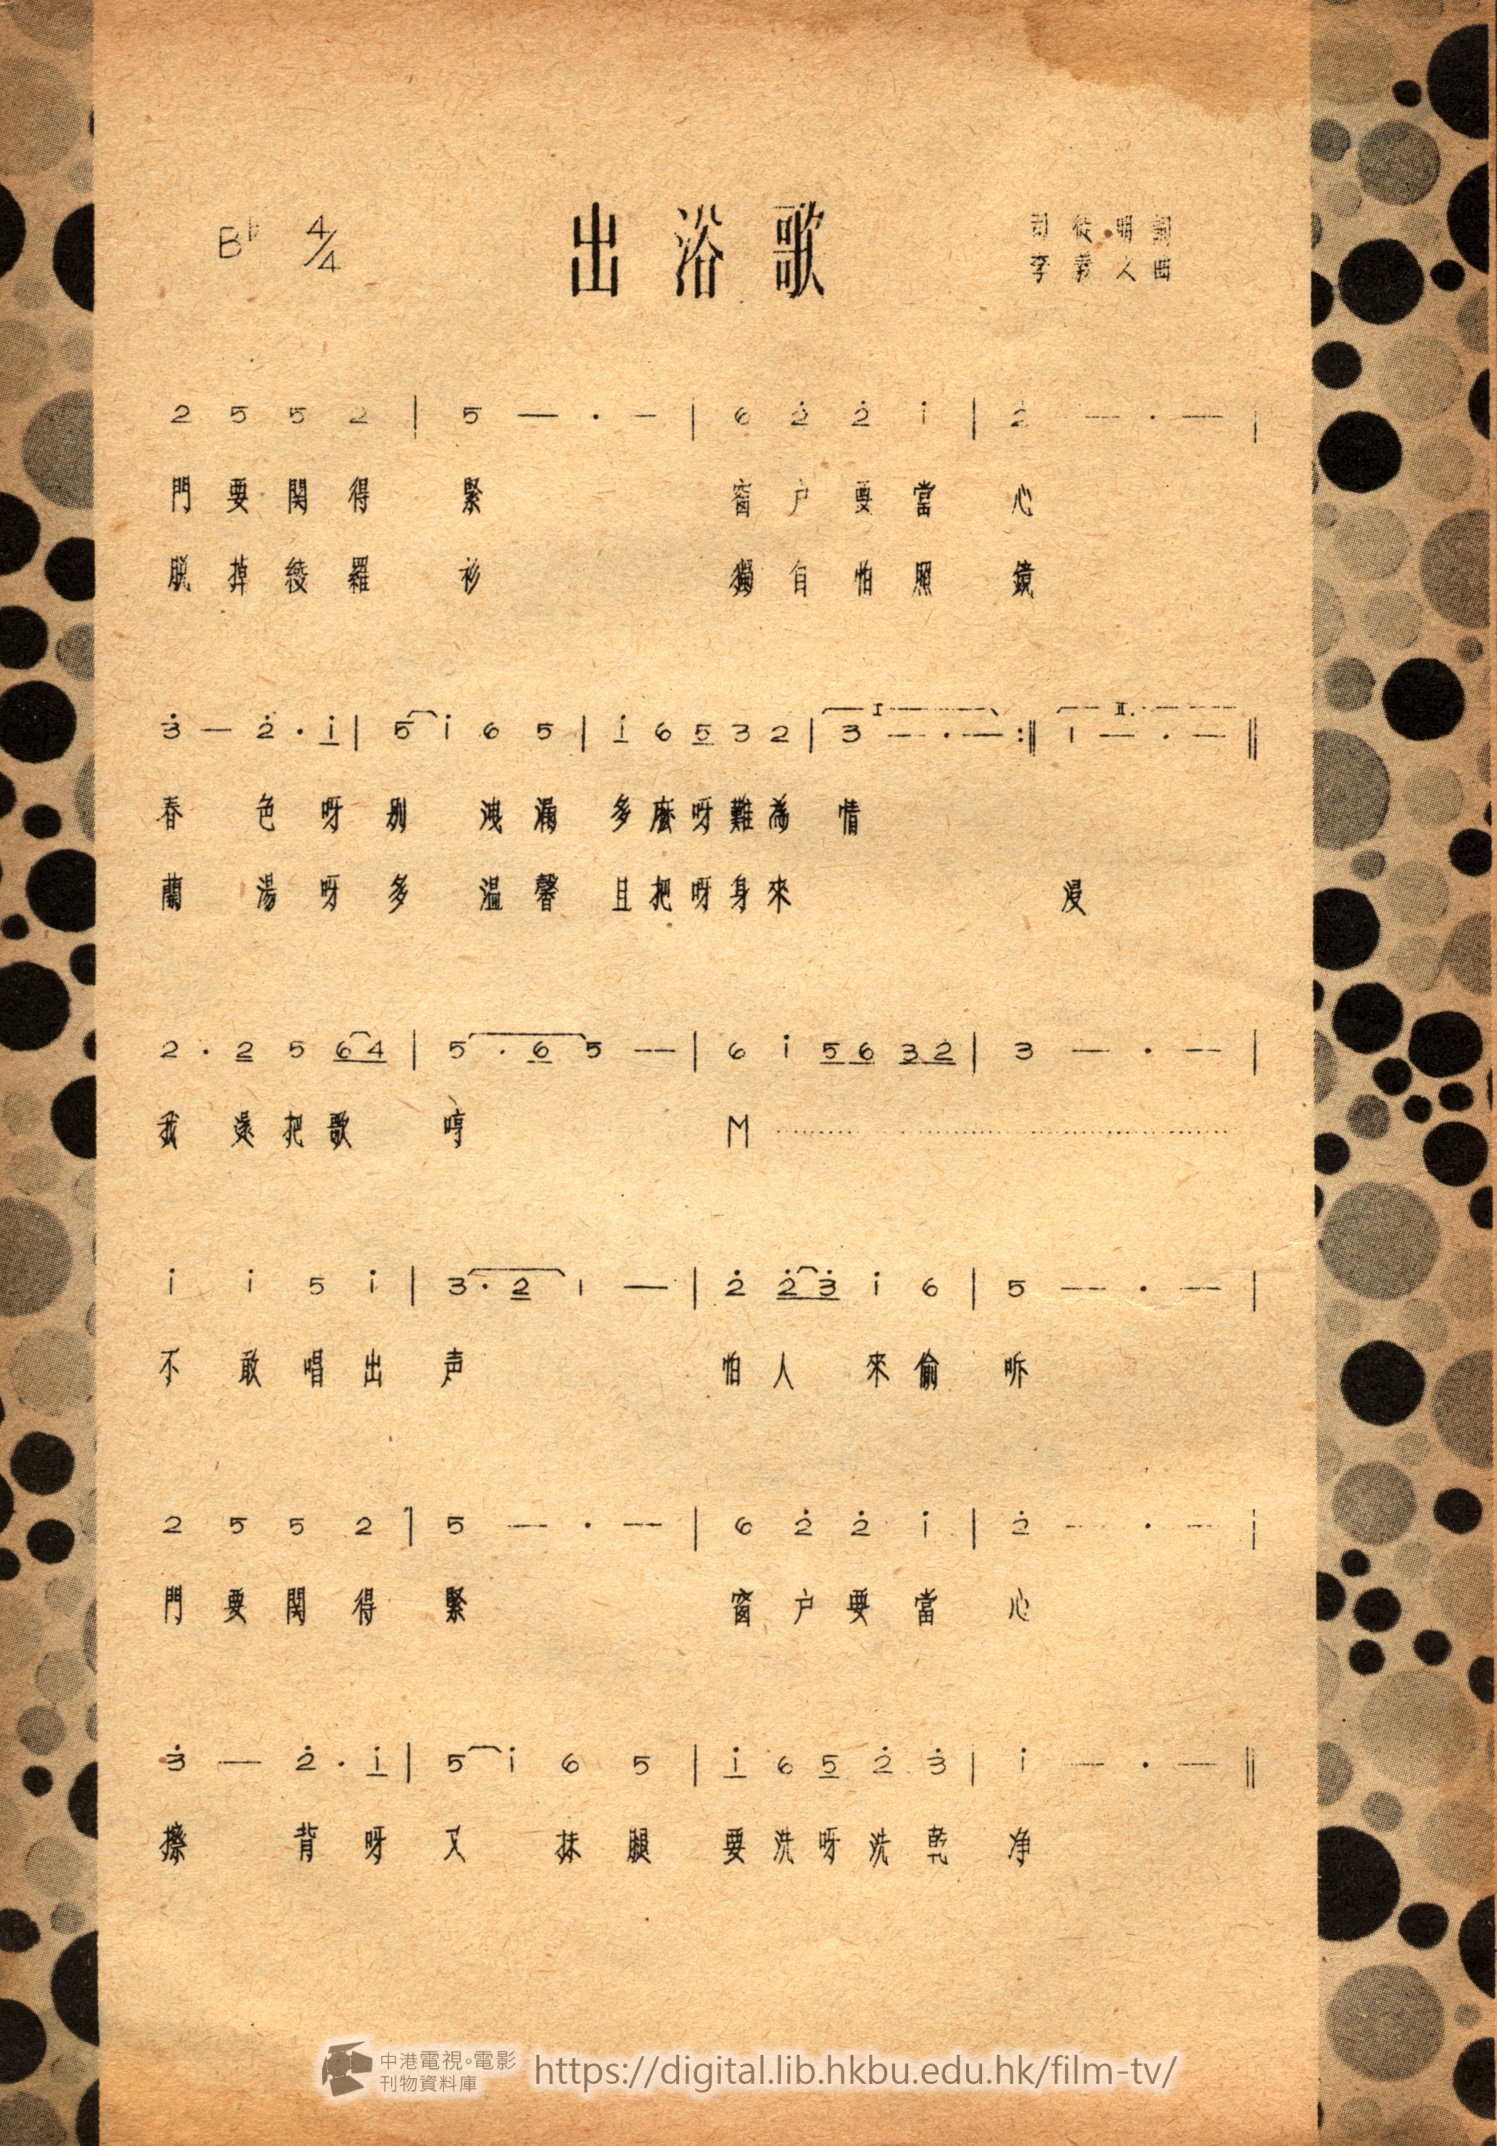 B♭ 4/4
出浴歌
司徒明詞
李義之曲
2 5 5 2 | 5 — · — | 6 2̇ 2̇ i̇ | 2̇ — · — |
門要関得緊 窗户要當心
脱掉綾羅衫 獨自怕照鏡
3̇ — 2̇ · i̲̇ | 5 i̇ 6 5 | i̲̇ 6 5̲ 3 2 | I 3 — · — :‖ II. 1 — · — ‖
春色呀别洩漏多麽呀難為情
蘭湯呀多温馨且把呀身來浸
2 · 2̲ 5 6̲4̲ | 5 · 6̲ 5 — | 6 i̇ 5̲6̲ 3̲2̲ | 3 — · — |
我還把歌哼 M……………………
i̇ i̇ 5 i̇ | 3 · 2̲ 1 — | 2̇ 2̲̇3̲̇ i̇ 6 | 5 — · — |
不敢唱出声 怕人來偷听
2 5 5 2 | 5 — · — | 6 2̇ 2̇ i̇ | 2̇ — · — |
門要関得緊 窗户要當心
3̇ — 2̇ · i̲̇ | 5 i̇ 6 5 | i̲̇ 6 5̲ 2̇ 3̇ | i̇ — · — ‖
擦背呀又抹腿要洗呀洗乾净
中港電視。電影
刊物資料庫
https://digital.lib.hkbu.edu.hk/film-tv/